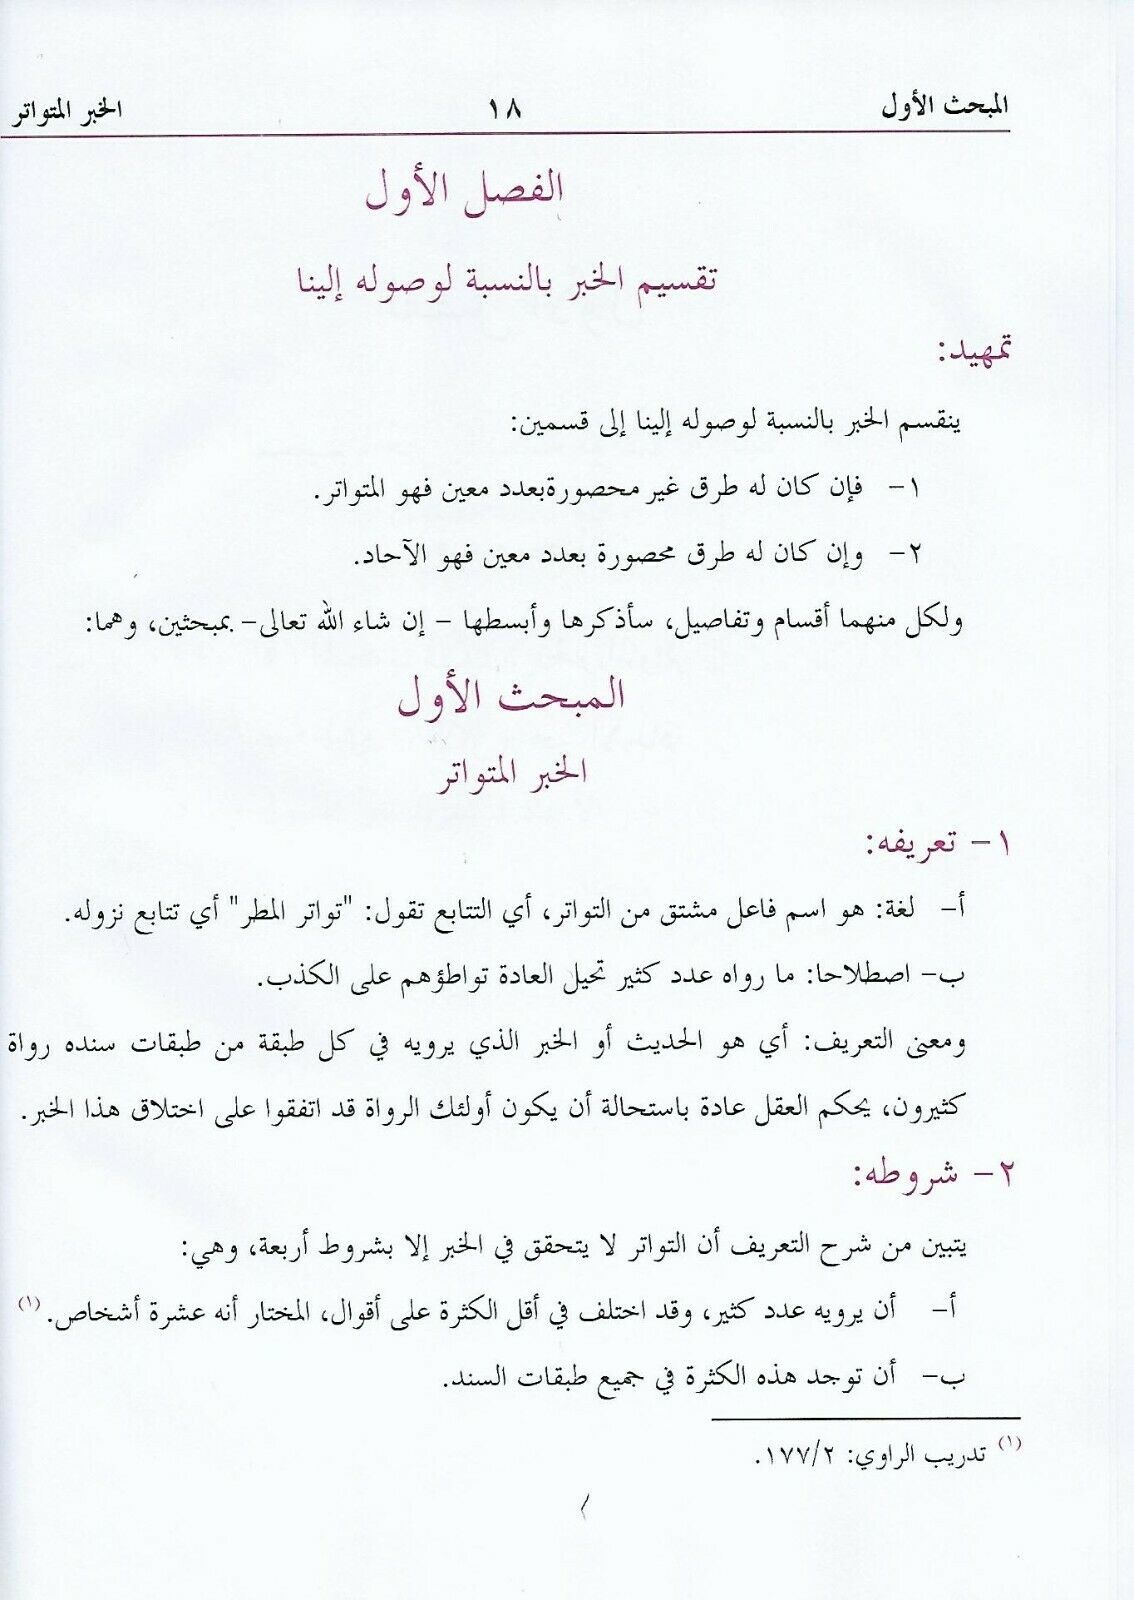 المبحث الأول ١٨ الخبر المتواتر
الفصل الأول
تقسيم الخبر بالنسبة لوصوله إلينا
تمهيد:
ينقسم الخبر بالنسبة لوصوله إلينا إلى قسمين:
١- فإن كان له طرق غير محصورةبعدد معين فهو المتواتر.
٢- وإن كان له طرق محصورة بعدد معين فهو الآحاد.
ولكل منهما أقسام وتفاصيل، سأذكرها وأبسطها - إن شاء الله تعالى- بمبحثين، وهما:
المبحث الأول
الخبر المتواتر
١- تعريفه:
أ- لغة: هو اسم فاعل مشتق من التواتر، أي التتابع تقول: "تواتر المطر" أي تتابع نزوله.
ب- اصطلاحا: ما رواه عدد كثير تحيل العادة تواطؤهم على الكذب.
ومعنى التعريف: أي هو الحديث أو الخبر الذي يرويه في كل طبقة من طبقات سنده رواة
كثيرون، يحكم العقل عادة باستحالة أن يكون أولئك الرواة قد اتفقوا على اختلاق هذا الخبر.
٢- شروطه:
يتبين من شرح التعريف أن التواتر لا يتحقق في الخبر إلا بشروط أربعة، وهي:
أ- أن يرويه عدد كثير، وقد اختلف في أقل الكثرة على أقوال، المختار أنه عشرة أشخاص.(١)
ب- أن توجد هذه الكثرة في جميع طبقات السند.
(١) تدريب الراوي: ١٧٧/٢.